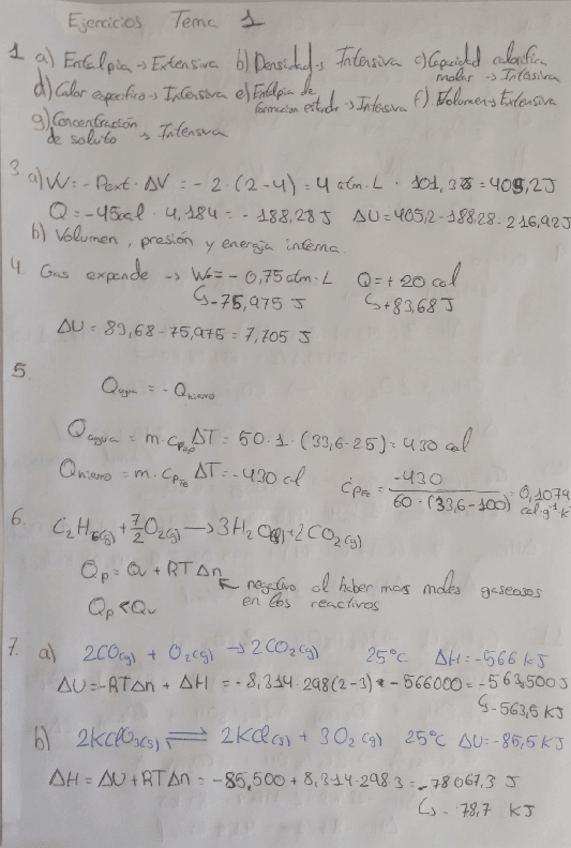 Ejercicios Tema 1
1 a) Entalpia → Extensiva b) Densidad → Intensiva c) Capacidad calorifica molar → Intensiva
d) Calor especifico → Intensiva e) Entalpia de formacion estndr → Intesiva f) Volumen → Extensiva
g) Concentración de soluto → Intensiva
3 a) W = - Pext · ΔV = - 2 · (2-4) = 4 atm · L · 101,3 = 405,2 J
Q = -45 cal · 4,184 = - 188,28 J ΔU = 405,2 - 188,28 = 216,92 J
b) Volumen, presión y energía interna.
4. Gas expande → W = - 0,75 atm · L Q = + 20 cal
↳ -75,975 J ↳ +83,68 J
ΔU = 83,68 - 75,975 = 7,705 J
5.
Qagua = - Qhierro
Qagua = m · cp ΔT = 50 · 1 · (33,6 - 25) = 430 cal
Qhierro = m · cpFe ΔT = -430 cal cpFe = -430 / 60 · (33,6 - 100) = 0,1079 cal·g⁻¹ K
6. C2H6(g) + 7/2 O2(g) → 3H2O(l) + 2CO2(g)
Qp = Qv + RTΔn ↖ negativo al haber mas moles gaseosos
Qp < Qv en los reactivos
7. a) 2CO(g) + O2(g) → 2CO2(g) 25°C ΔH = -566 kJ
ΔU = -RTΔn + ΔH = - 8,314 · 298 (2-3) + - 566000 = - 563,500 J
↳ -563,5 KJ
b) 2KClO3(s) ⇌ 2KCl(s) + 3O2(g) 25°C ΔU = -85,5 KJ
ΔH = ΔU + RTΔn = -85,500 + 8,314 · 298 3 = - 78067,3 J
↳ - 78,7 KJ